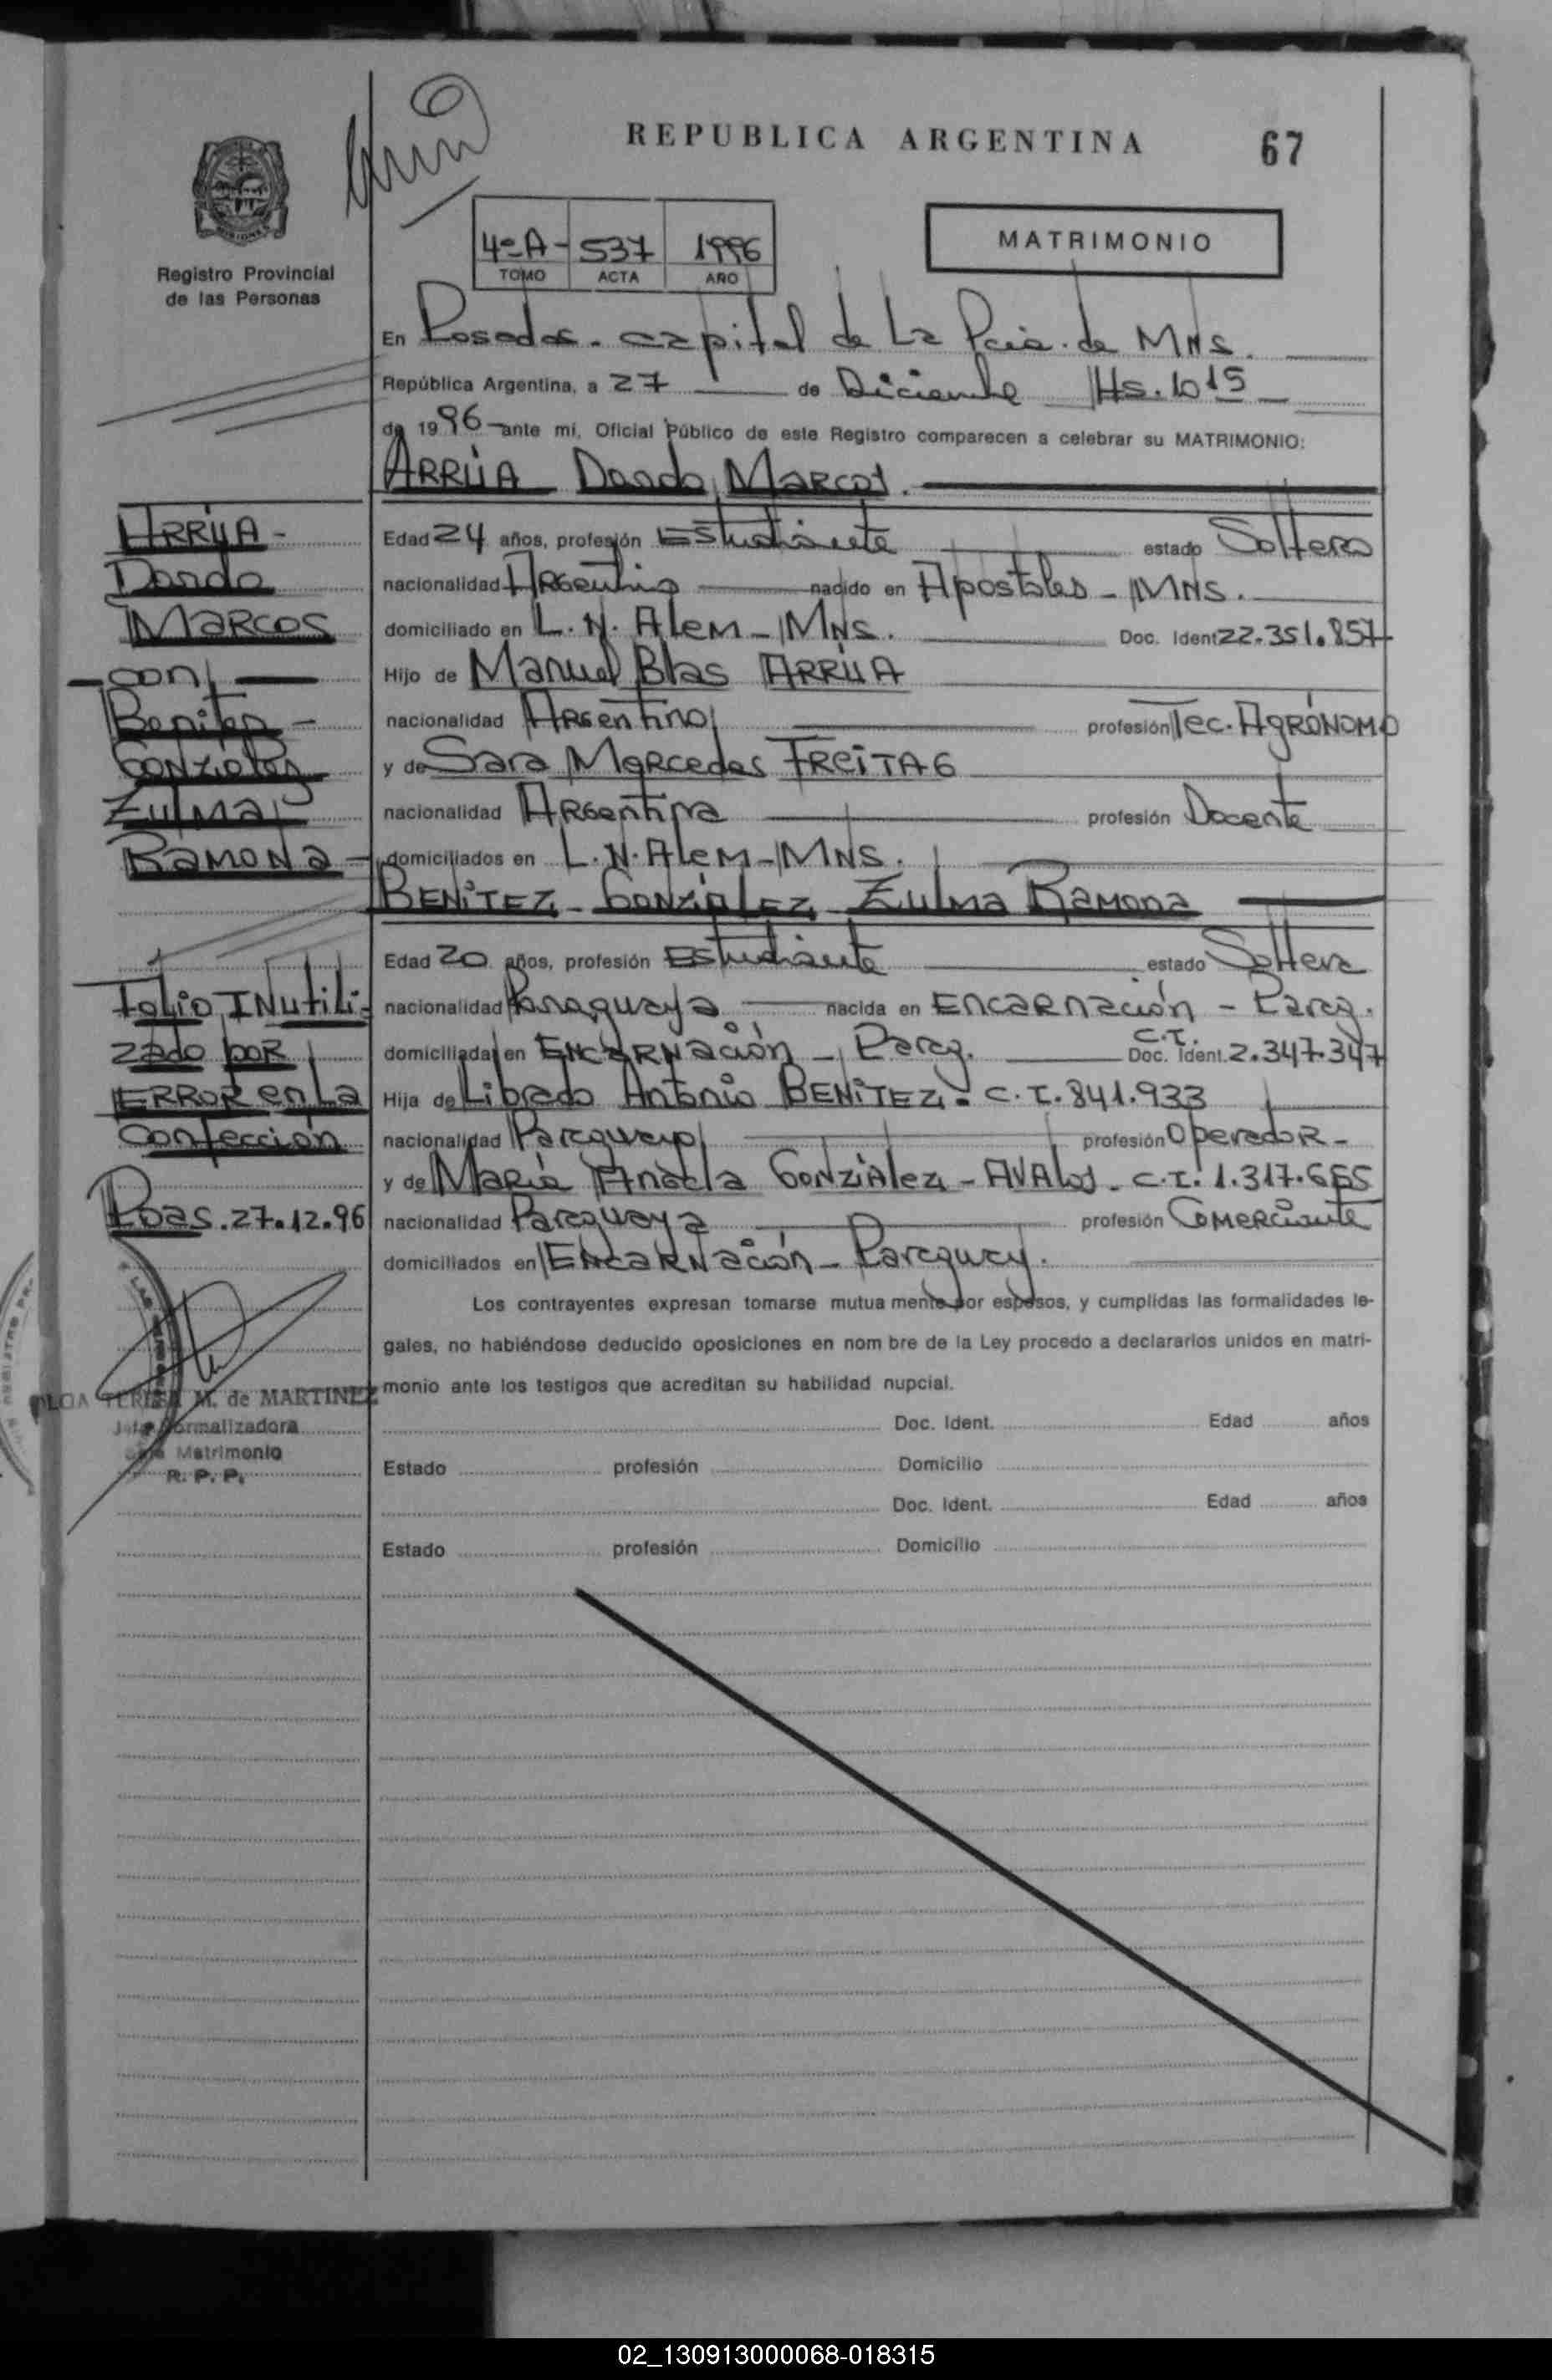 REPUBLICA ARGENTINA
67
Registro Provincial
de las Personas
4º A - 537 1996
TOMO ACTA AÑO
MATRIMONIO
En Posadas - capital de La Pcia. de MNS.
República Argentina, a 27 de Diciembre Hs. 10 15
de 1996 ante mí, Oficial Público de este Registro comparecen a celebrar su MATRIMONIO:
ARRÚA Dardo Marcos.
Edad 24 años, profesión Estudiante estado Soltero
nacionalidad Argentino nacido en Apostoles - MNS.
domiciliado en L. N. Alem - MNS. Doc. Ident. 22.351.857
Hijo de Manuel Blas ARRÚA
nacionalidad Argentino profesión Tec. AgRÓNOMO
y de Sara Mercedes FREITAS
nacionalidad Argentina profesión Docente
domiciliados en L. N. Alem - MNS.
BENÍTEZ GONZÁLEZ Zulma Ramona
Edad 20 años, profesión Estudiante estado Soltera
nacionalidad Paraguaya nacida en ENCARNación - Parag.
domiciliada en ENCARNación - Parag. C.I. Doc. Ident. 2.347.347
Hija de Librado Antonio BENÍTEZ. C.I. 841.933
nacionalidad Paraguayo profesión OperadoR -
y de María GonzÁlez - AVAlos. C.I. 1.317.655
nacionalidad Paraguaya profesión Comerciante
domiciliados en ENCARNación - Paraguay.
Los contrayentes expresan tomarse mutua mente por esposos, y cumplidas las formalidades le-
gales, no habiéndose deducido oposiciones en nom bre de la Ley procedo a declararlos unidos en matri-
monio ante los testigos que acreditan su habilidad nupcial.
Doc. Ident. Edad años
Estado profesión Domicilio
Doc. Ident. Edad años
Estado profesión Domicilio
ARRÚA -
Dardo
MARCOS
- con -
Benítez -
GONZÁlez
Zulma
RAMONA -
Folio INutili-
zado poR
ERROR en La
Confección
Pdas. 27.12.96
OLGA TERESA M. de MARTINEZ
Jefa Normalizadora
Matrimonio
R. P. P.
02_130913000068-018315